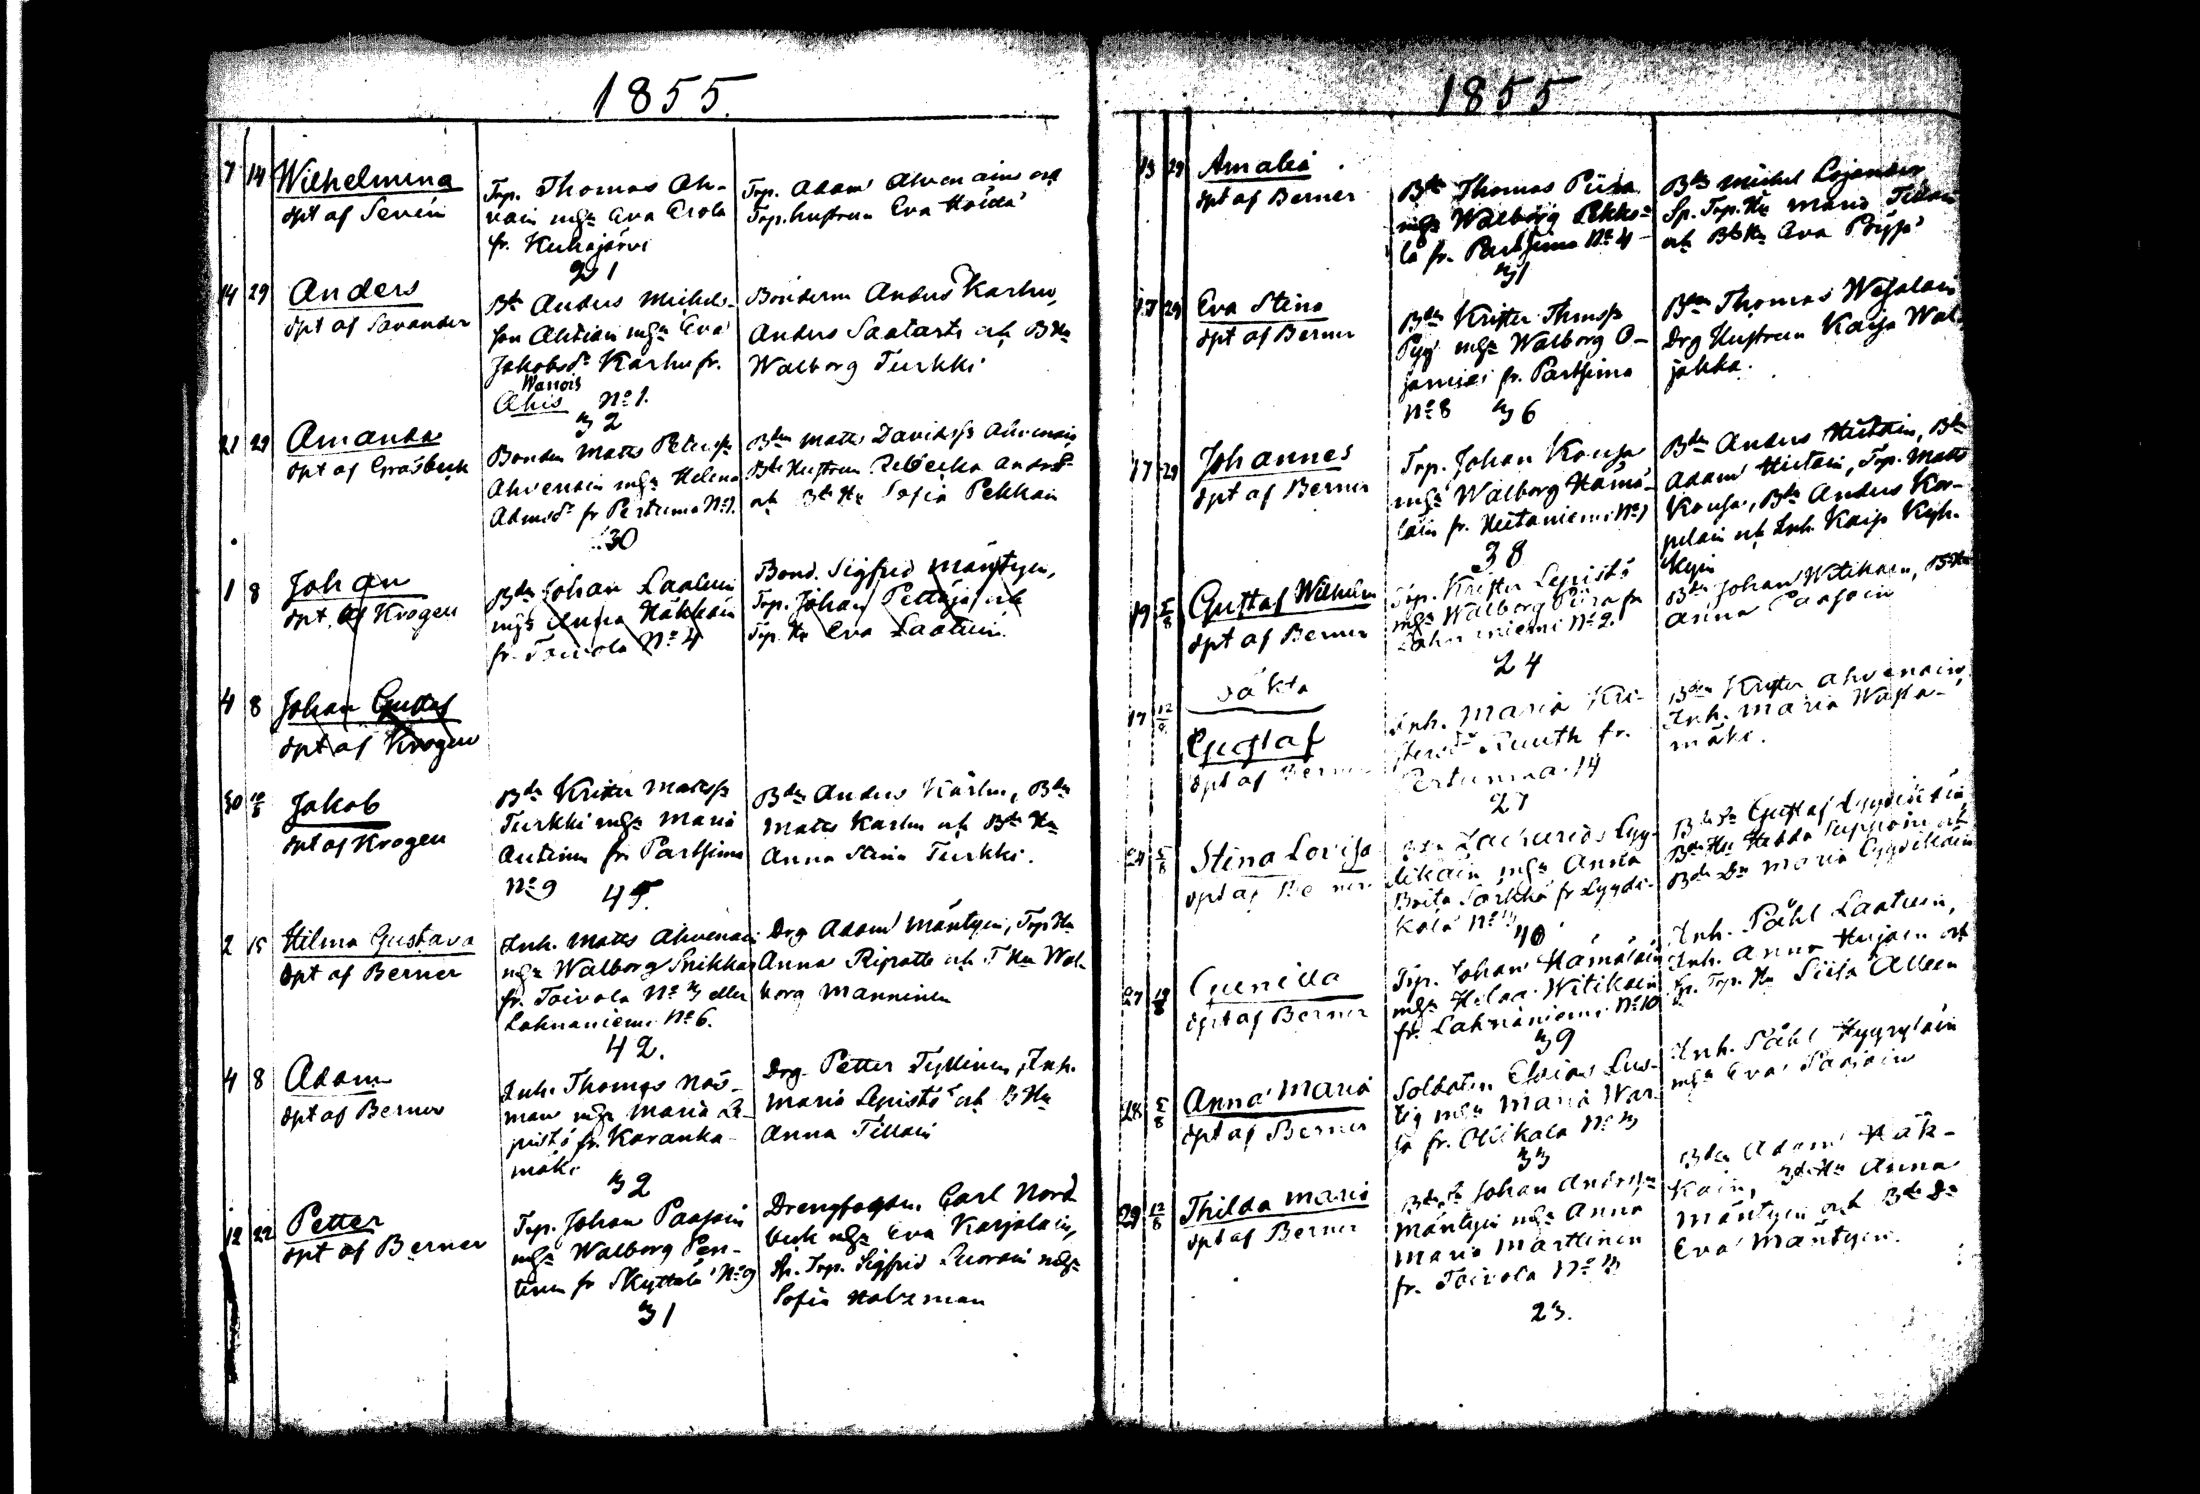 1855.
7 14 Wilhelmina
döpt af Sevén
Torp. Thomas Ah-
vain m. h. Eva Erola
fr. Kuhajärvi
21
Torp. Adam Ahvenainen och
Torp. hustrun Eva
14 29 Anders
döpt af Savander
Bd. Anders Michels-
son Ahtiain m. h. Eva
Jakobsdr Karhu fr.
Wanois
Ahis No 1.
32
Bonden Anders Karhu,
Anders Saatarti och B. Hu
Walborg Turkki
21 29 Amanda
döpt af Gråsbeck
Bonden Matts Peterss.
Ahvenain m. h. Helena
Adamsdr fr Pertuma No 1.
30
Bdn Matts Davidss. Ahvenain
Bd. Hustrun Rebecka Andrsdr
och Bd. Hu Sofia Pekkain
1 8 Johan
döpt af Krogen
Bdn Johan Laatuin
m. h. Anna Häkkäin
fr. Toivola No 4
Bond. Sigfrid Mäntyin,
Torp. Johan och
Torp. Hu Eva Laatuin.
4 8 Johan Gustaf
döpt af Krogen
30 10/8 Jakob
döpt af Krogen
Bdn Krister Matss.
Turkki m. h. Maria
Autinen fr. Partsima
No 9 45.
Bdn Anders Karhu, Bdn
Matts Karhu och Bd. Hu
Anna Stina Turkki.
2 15 Hilma Gustava
döpt af Berner
Inh. Matts Ahvenain
m. h. Walborg Snikkar
fr. Toivola No 3 eller
Lahnaniemi No 6.
42.
Drg Adam Mäntyin, Torp. Hu
Anna Ripatti och T. Hu Wal-
borg Manninen
4 8 Adam
döpt af Berner
Inh. Thomas Näs-
man m. h. Maria Le-
pistö fr. Karanka-
mäki
32
Drg. Petter Tyllinen, Inh.
Maria Lepistö och B. Hu
Anna Tillain
12 22 Petter
döpt af Berner
Torp. Johan Paasoin
m. h. Walborg Pen-
tinen fr Skyttälä No 9
31
Drengfogden Carl Nord-
beck m. h. Eva Karjalain,
Sp. Torp. Sigfrid Luorain m. h.
Sofia Holzman
1855
13 29 Amalia
döpt af Berner
Bdn Thomas Piira
m. h. Walborg Pekko-
la fr. Partsima No 4
31
Bdn Michel Lojander
Sp. Torp. Hu Maria Tillain
och Bd. Hu Eva Pöyssä
17 29 Eva Stina
döpt af Berner
Bdn Krister Thomss.
Pyy m. h. Walborg O-
janiei fr. Partsima
No 8 36
Bdn Thomas Wesalain
Drg Hustrun Kaisa Wal-
jakka.
17 29 Johannes
döpt af Berner
Torp. Johan Kousa
m. h. Walborg Hämä-
läin fr. Hietaniemi No 1
38
Bdn Anders Hietain, Bdn
Adam Hietain, Torp. Matts
Kousa, Bdn Anders Kor-
pelain och Inh. Kaisa Kyh-
kyin
19 5/8 Gustaf Wilhelm
döpt af Berner
Torp. Krister Lepistö
m. h. Walborg Piira fr
Lahnaniemi No 2.
24
Bdn Johan Witikain, B. Hu
Anna Paasoin
17 12/9 oäkta
Gustaf
döpt af Berner
Inh. Maria Kri-
stersdr Ruuth fr.
Pertunma 14
27
Bdn Krister Ahvenain,
Inh. Maria Wasta-
mäki.
24 5/8 Stina Lovisa
döpt af Berner
Bdn Zacharias Lyy-
dikäin m. h. Anna
Brita Särkkä fr Lyydi-
kälä No 3
40
Bd. Sn Gustaf Lyydikäin
Bd. Hu Hedda Suppoin och
Bd. Dr Maria Lyydikäin
27 12/8 Gunilla
döpt af Berner
Torp. Johan Hämäläin
m. h. Helena Witikain
fr. Lahnaniemi No 10
39
Inh. Påhl Laatuin,
Inh. Anna Hujain och
Sp. Torp. Hu Siisa Alleen
28 5/8 Anna Maria
döpt af Berner
Soldaten Elias Lus-
tig m. h. Maria War-
sa fr. Ollikala No 3
33
Inh. Påhl Hyyryläin
m. h. Eva Paasoin
29 12/8 Thilda Maria
döpt af Berner
Bd. Sn Johan Anderss.
Mäntyin m. h. Anna
Maria Marttinen
fr. Toivola No 3
23.
Bdn Adam Häk-
käin, Bd. Hu Anna
Mäntyin och Bd. Dr
Eva Mäntyin.